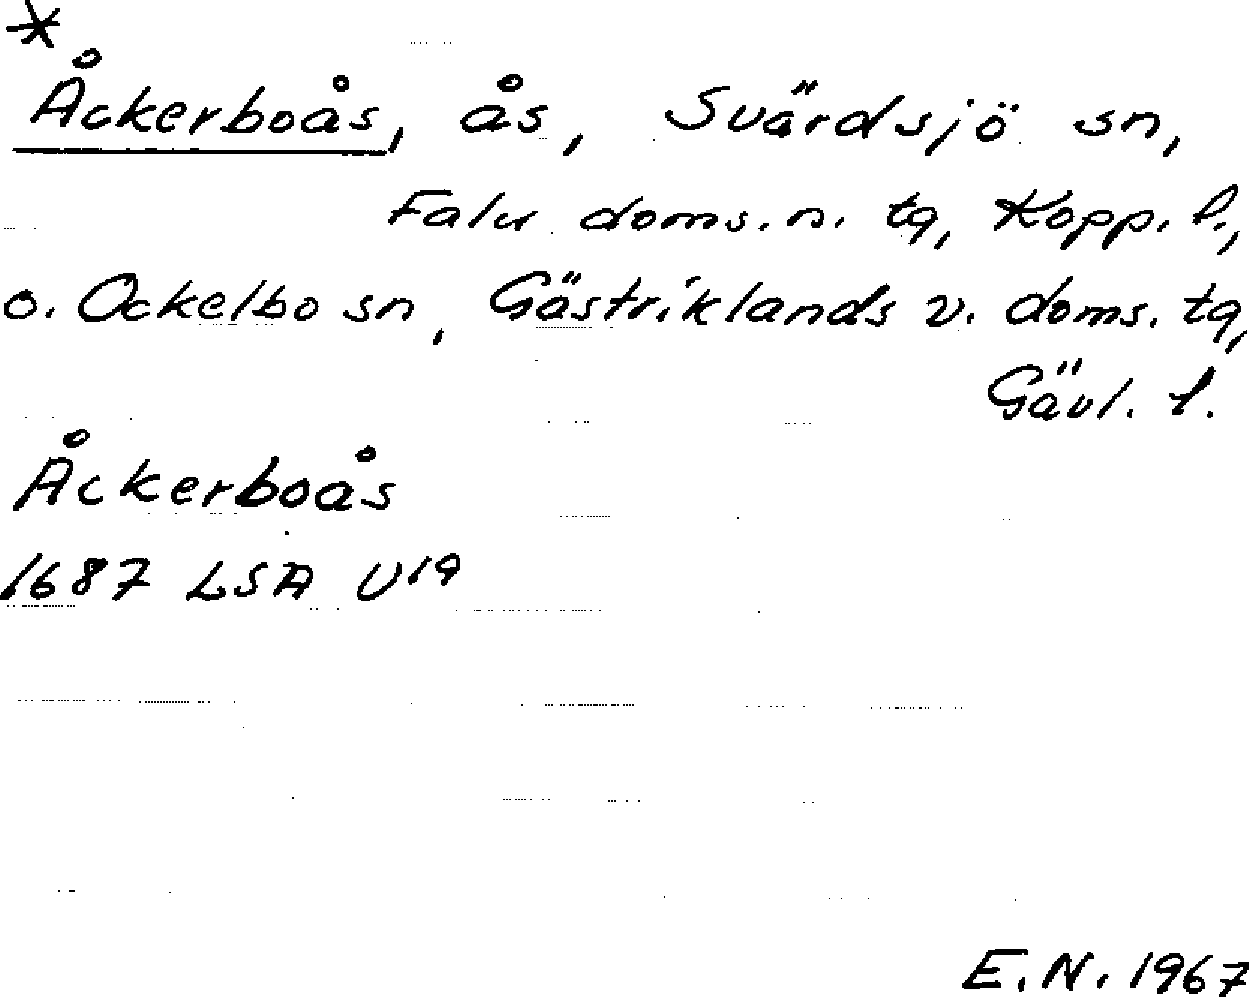 *
Åckerboås, ås, Svärdsjö sn,
Falu doms. n. tg, Kopp. l.,
o. Ockelbo sn, Gästriklands v. doms. tg,
Gävl. l.
Åckerboås
1687 LSA U19
E.N. 1967